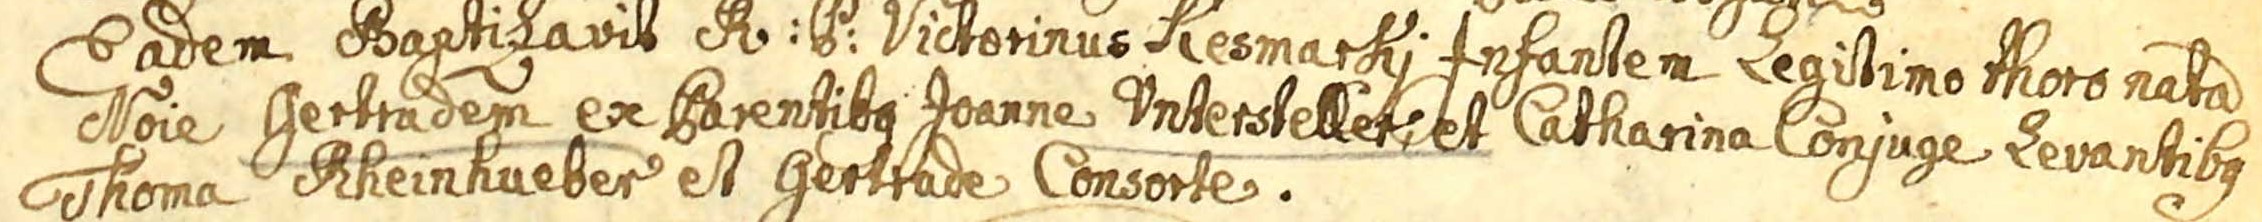 Eadem Baptizavit R: P: Victorinus Kesmarkj Infantem Legitimo thoro nata
Noie Gertradem ex Parentibq Joanne Untersteller, et Catharina Conjuge Levantibq
Thoma Rheinhueber et Gertrade Consorte.